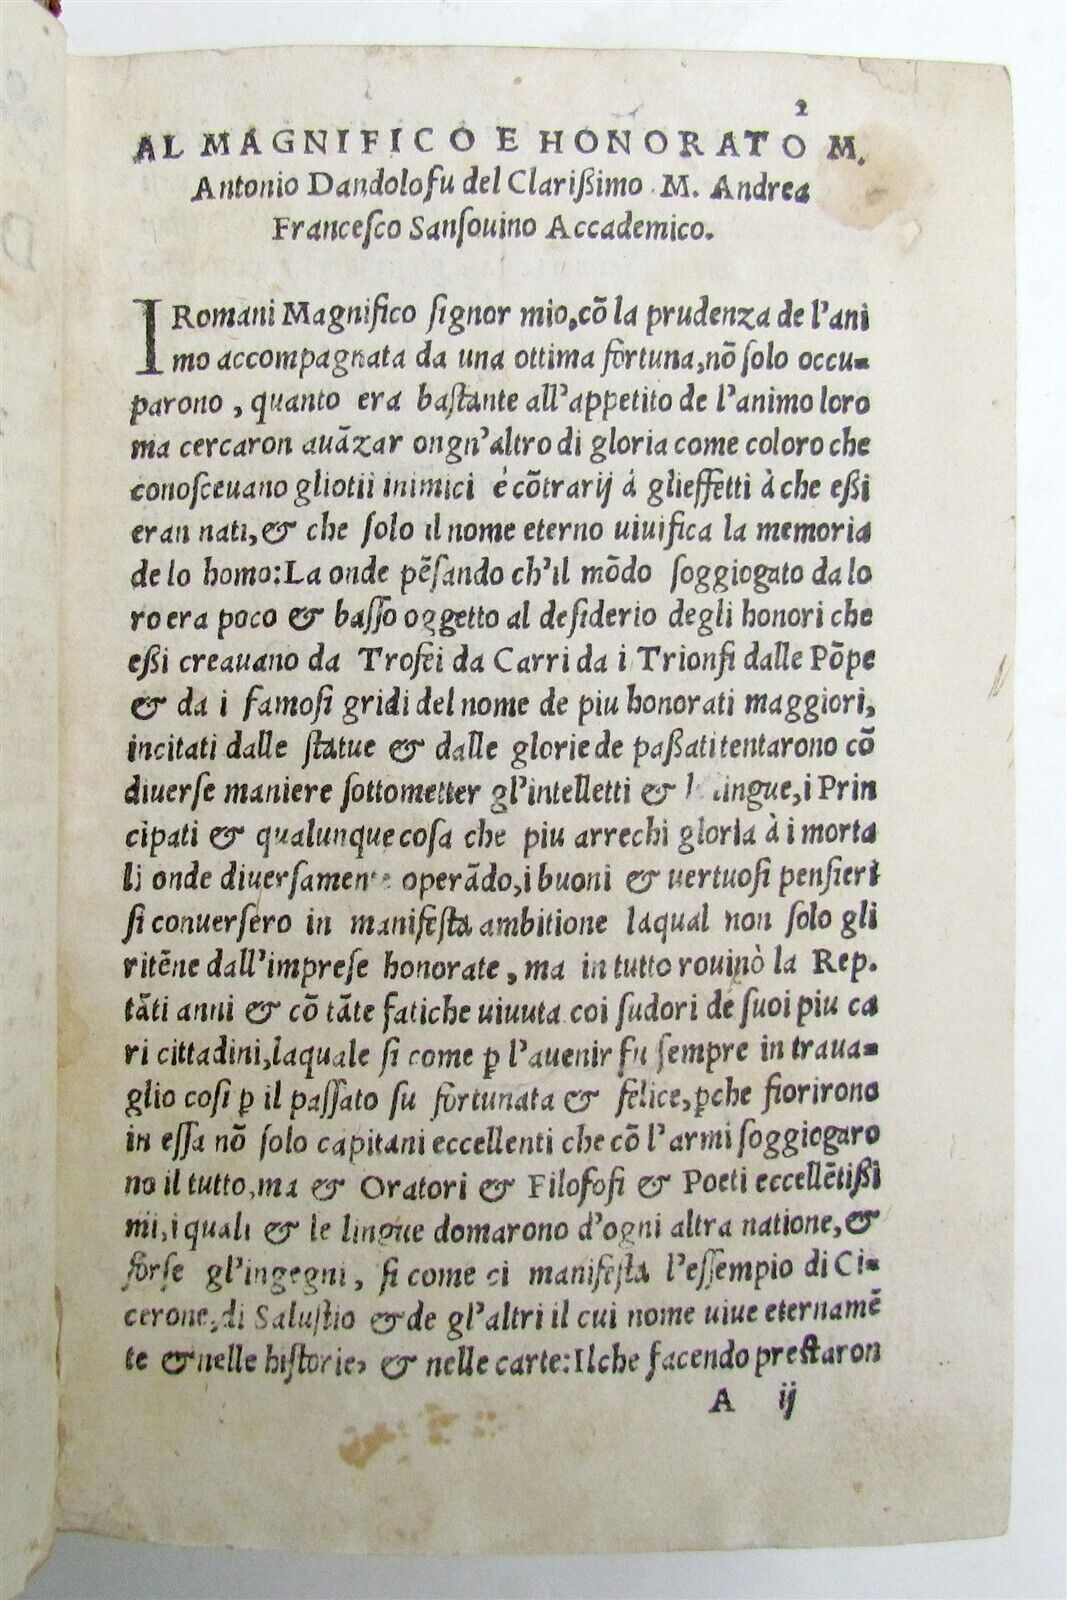 2
AL MAGNIFICO E HONORATO M.
Antonio Dandolo fu del Clarißimo M. Andrea
Francesco Sanſouino Accademico.
I Romani Magnifico ſignor mio, cõ la prudenza de l'ani
mo accompagnata da una ottima fortuna, nõ ſolo occu-
parono, quanto era baſtante all'appetito de l'animo loro
ma cercaron auãzar ongn'altro di gloria come coloro che
conoſceuano gliotii inimici è cõtrarij á glieffetti à che eßi
eran nati, & che ſolo il nome eterno uiuifica la memoria
de lo homo: La onde pẽſando ch'il mõdo ſoggiogato da lo
ro era poco & baſſo oggetto al deſiderio degli honori che
eßi creauano da Trofei da Carri da i Trionfi dalle Põpe
& da i famoſi gridi del nome de piu honorati maggiori,
incitati dalle ſtatue & dalle glorie de paßati tentarono cõ
diuerſe maniere ſottometter gl'intelletti & lingue, i Prin
cipati & qualunque coſa che piu arrechi gloria à i morta
li onde diuerſamente operãdo, i buoni & uertuoſi penſieri
ſi conuerſero in manifeſta ambitione laqual non ſolo gli
ritẽne dall'impreſe honorate, ma in tutto rouinò la Rep.
tãti anni & cõ tãte fatiche uiuuta coi ſudori de ſuoi piu ca
ri cittadini, laquale ſi come ꝑ l'auenir fu ſempre in traua-
glio coſi ꝑ il paſſato fu fortunata & felice, ꝑche fiorirono
in eſſa nõ ſolo capitani eccellenti che cõ l'armi ſoggiogaro
no il tutto, ma & Oratori & Filoſofi & Poeti eccellẽtißi
mi, i quali & le lingue domarono d'ogni altra natione, &
forſe gl'ingegni, ſi come ci manifeſta l'eſſempio di Ci-
cerone, di Saluſtio & de gl'altri il cui nome uiue eternamẽ
te & nelle hiſtorie, & nelle carte: Ilche facendo preſtaron
A ij